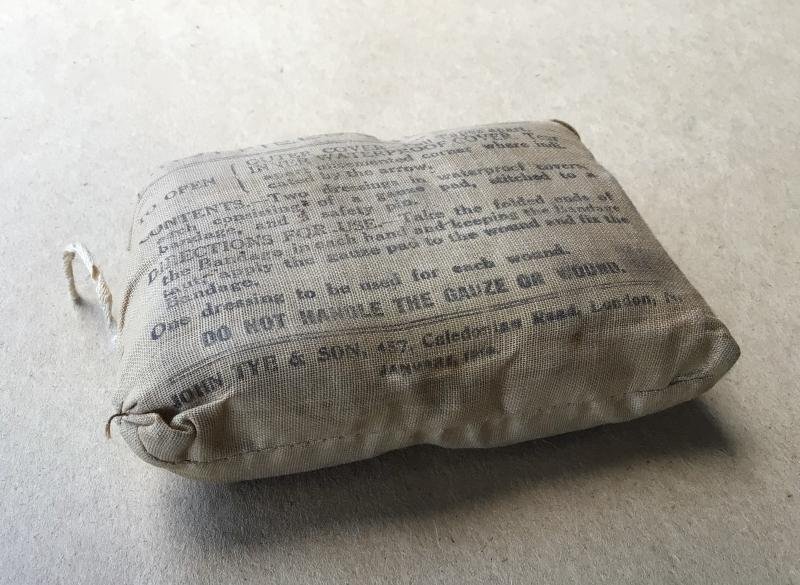 TO OPEN { OUTER COVER
INNER WATERPROOF COVER Tear
apart cemented corner where indi-
cated by the arrow.
CONTENTS.—Two dressings in waterproof covers,
each consisting of a gauze pad, stitched to a
bandage, and safety pin.
DIRECTIONS FOR USE. Take the folded ends of
the Bandage in each hand and keeping the Bandage
taut, apply the gauze pad to the wound and fix the
Bandage.
One dressing to be used for each wound.
DO NOT HANDLE THE GAUZE OR WOUND.
JOHN TYE & SON, 457, Caledonian Road, London, N.
JANUARY,